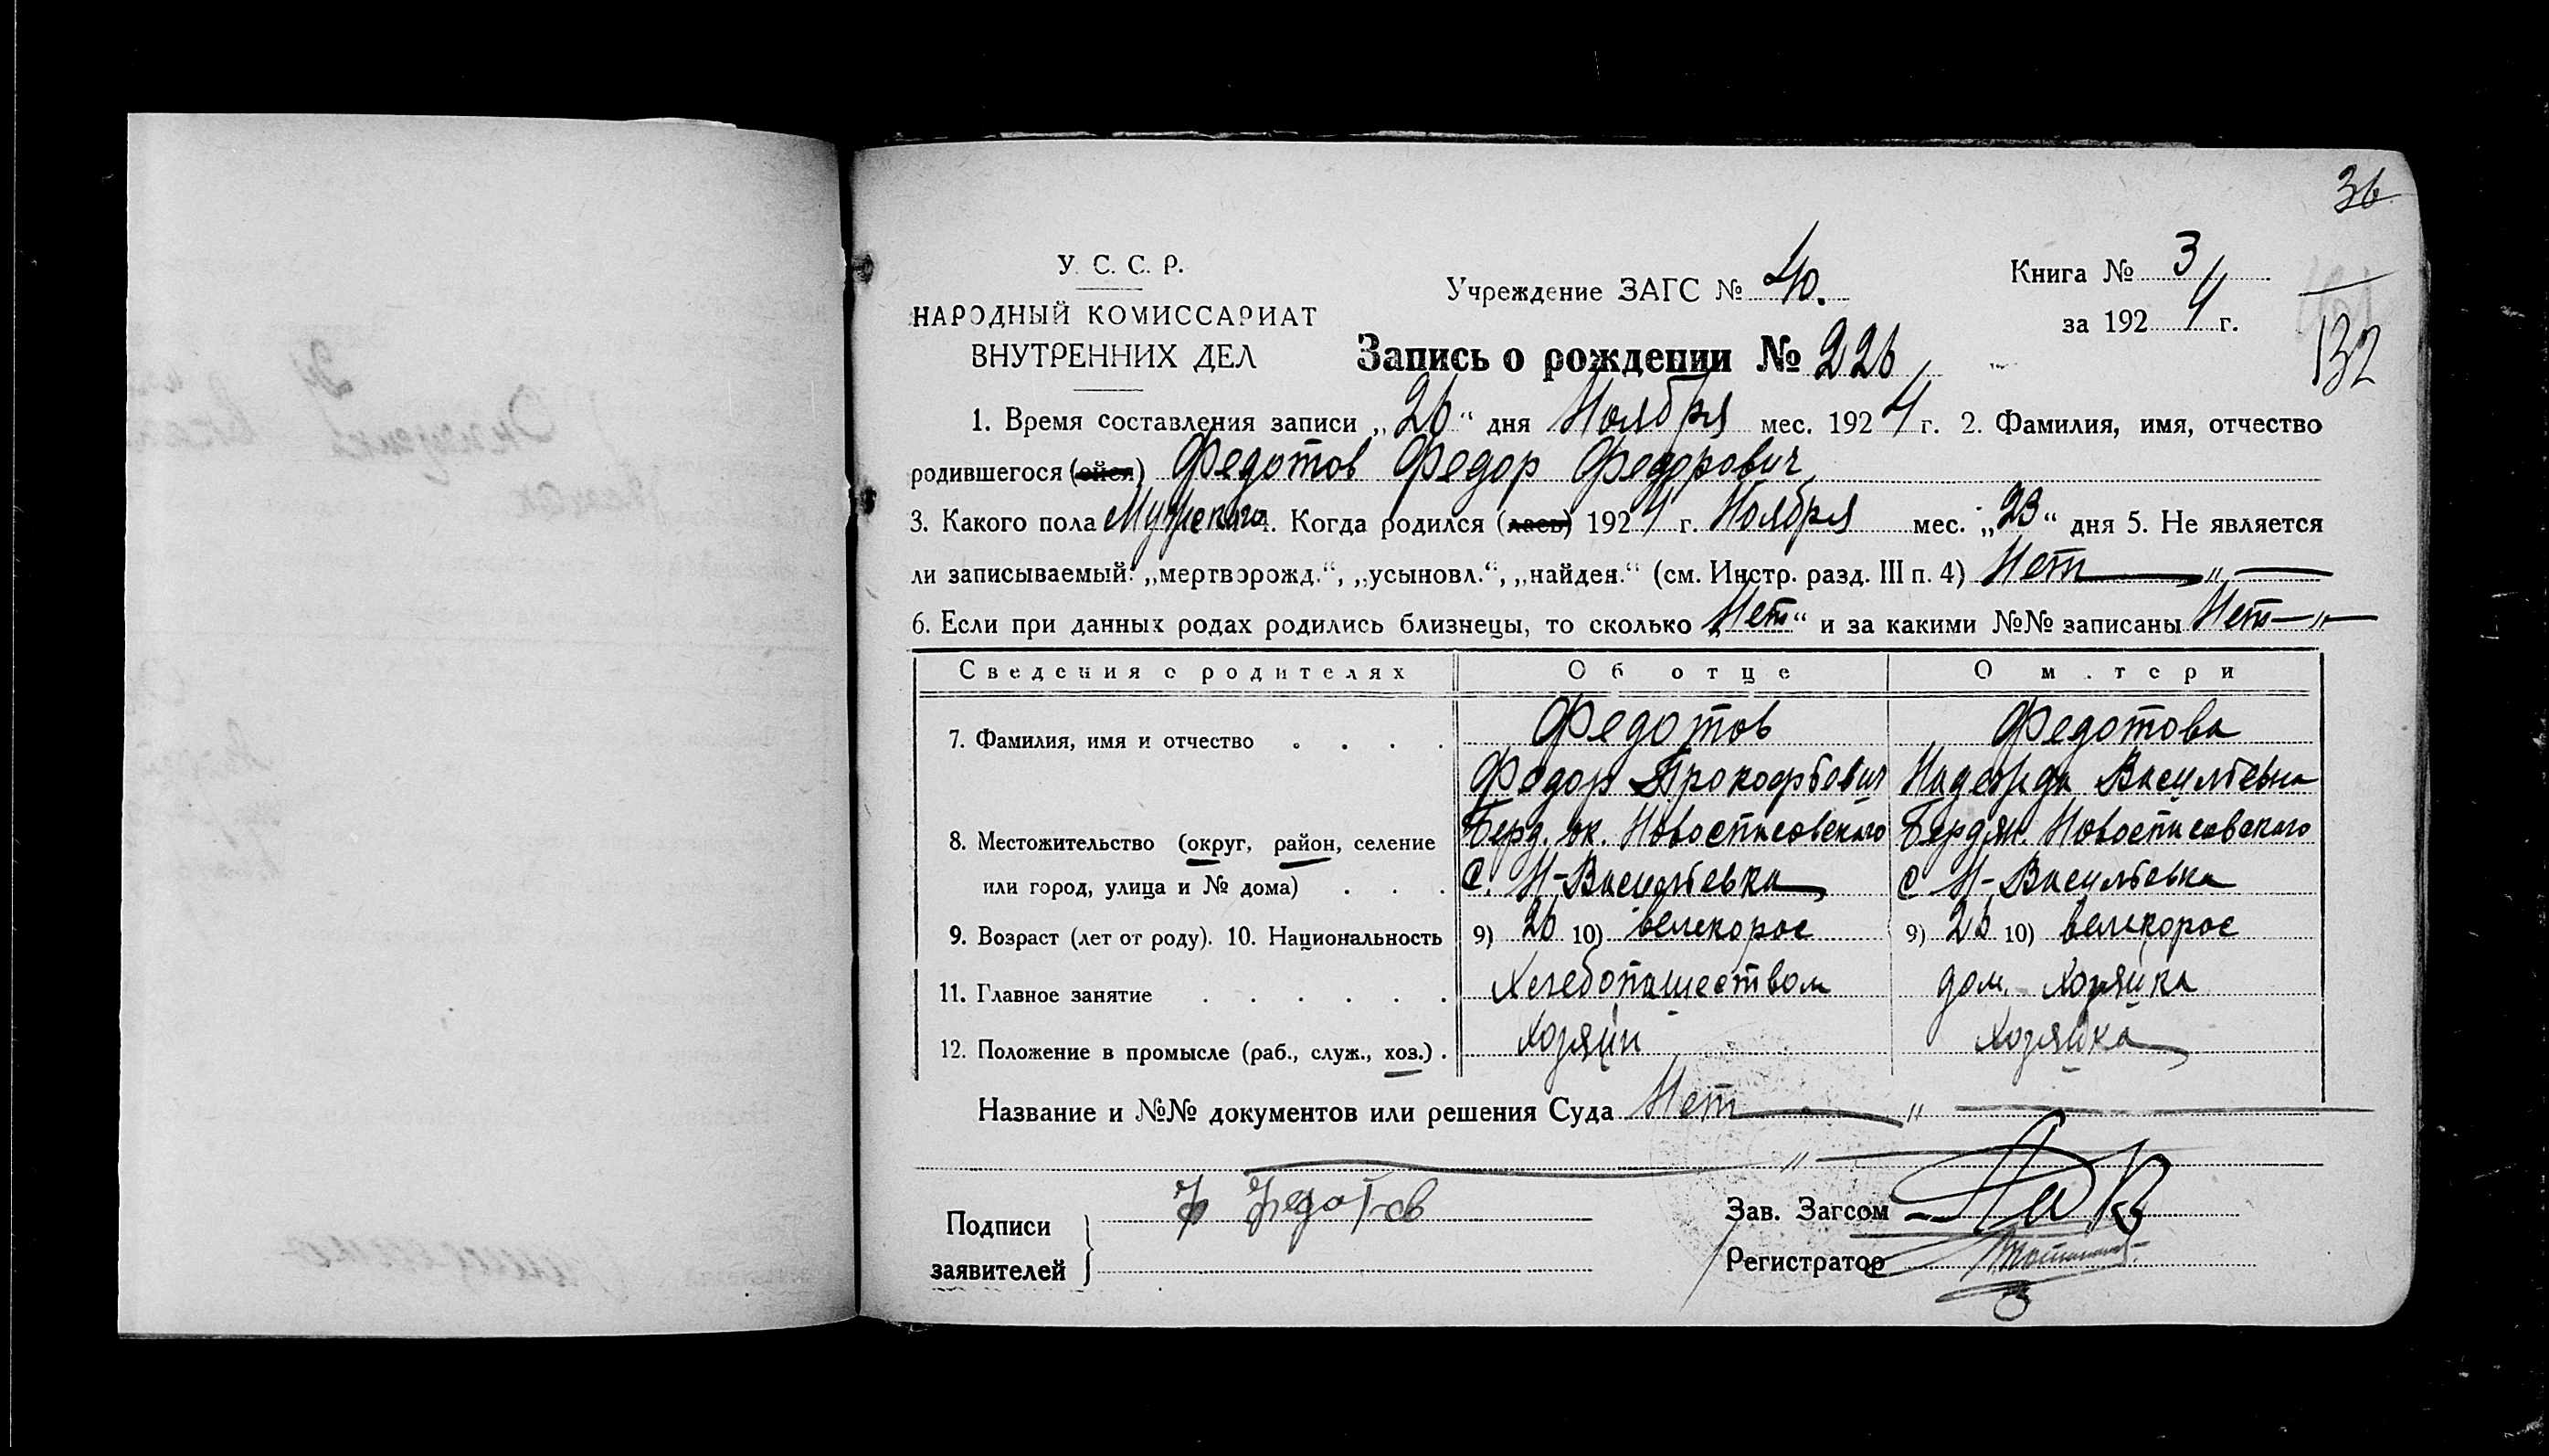 36
У. С. С. Р.
НАРОДНЫЙ КОМИССАРИАТ
ВНУТРЕННИХ ДЕЛ
Учреждение ЗАГС № 40.
Книга № 3
за 1924 г.
132
Запись о рождении № 226
1. Время составления записи „26“ дня Ноября мес. 1924 г. 2. Фамилия, имя, отчество
родившегося (ойся) Федотов Федор Федорович
3. Какого пола Мужского 4. Когда родился (лась) 1924 г. Ноября мес. „23“ дня 5. Не является
ли записываемый: „мертворожд.“, „усыновл.“, „найден.“ (см. Инстр. разд. III п. 4) Нет — „ —
6. Если при данных родах родились близнецы, то сколько „Нет“ и за какими №№ записаны Нет — „ —
Сведения о родителях Об отце О м.тери
7. Фамилия, имя и отчество . . . . Федотов Федотова
Федор Прокофьевич Надежда Васильевна
8. Местожительство (округ, район, селение Берд. ок. Новоспасовского Бердян. Новоспасовского
или город, улица и № дома) . . . с. Н-Васильевка с Н-Васильевка
9. Возраст (лет от роду). 10. Национальность 9) 26 10) великорос 9) 26 10) великорос
11. Главное занятие . . . . . . Хлебопашеством дом. хозяйка
12. Положение в промысле (раб., служ., хоз.) . хозяин хозяйка
Название и №№ документов или решения Суда Нет — „ —
— „ —
Подписи
заявителей
Ф Федотов
Зав. Загсом
Регистратор